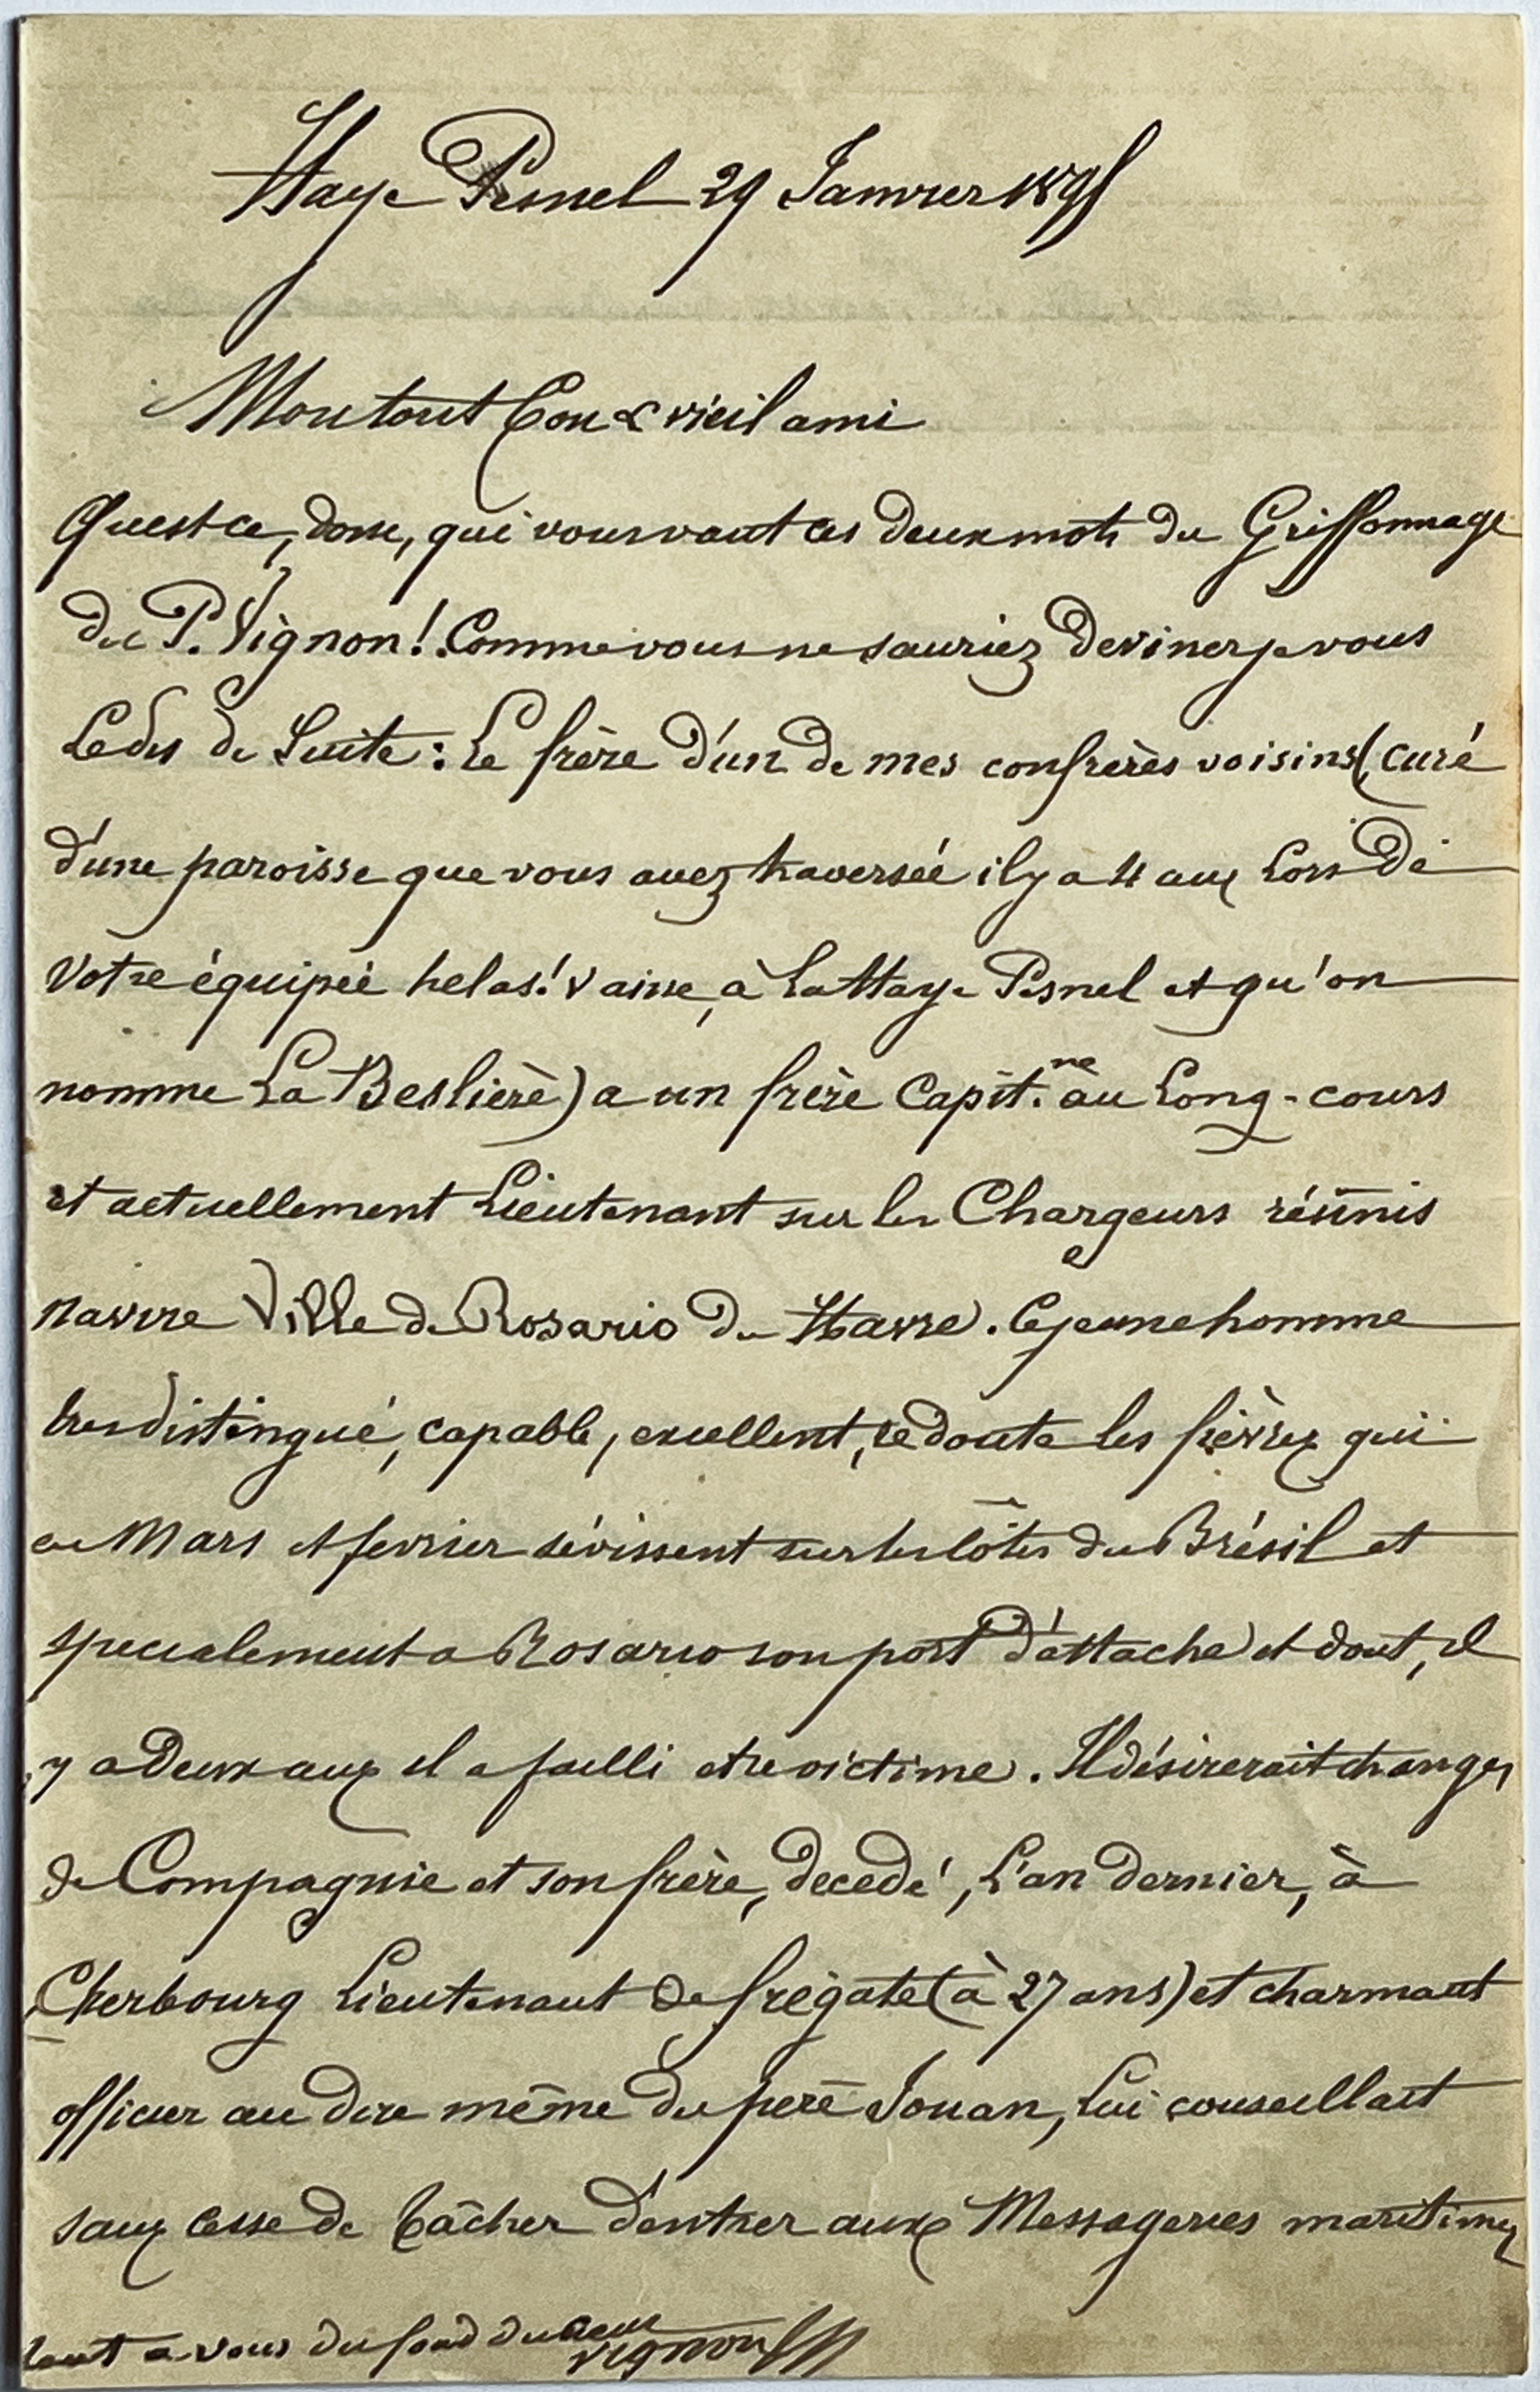 Haye Pesnel 29 Janvier 189
Mon tout bon & vieil ami
Qu'est ce, donc, qui vous vaut ces deux mots du Griffonnage
du P. Vignon! Comme vous ne sauriez deviner je vous
le dis de suite: Le frère d'un de mes confrères voisins (curé
d'une paroisse que vous avez traversée il y a 4 ans lors de
votre équipée helas! vaine, à La Haye Pesnel et qu'on
nomme La Beslière) a un frère Capit.ne au Long-cours
et actuellement Lieutenant sur les Chargeurs réunis
navire Ville de Rosario du Havre. Ce jeune homme
tres distingué, capable, excellent, redoute les fièvres qui
en Mars et fevrier sévissent sur les côtes du Brésil et
specialement a Rosario son port d'attache et dont, il
y a deux ans il a failli etre victime. Il désirerait changer
de Compagnie et son frère, decedé, l'an dernier, à
Cherbourg Lieutenant de frégate (à 27 ans) et charmant
officier au dire même du père Jouan, lui conseillait
sans cesse de tâcher d'entrer aux Messageries maritimes
tout a vous du fond du coeur
Vignon